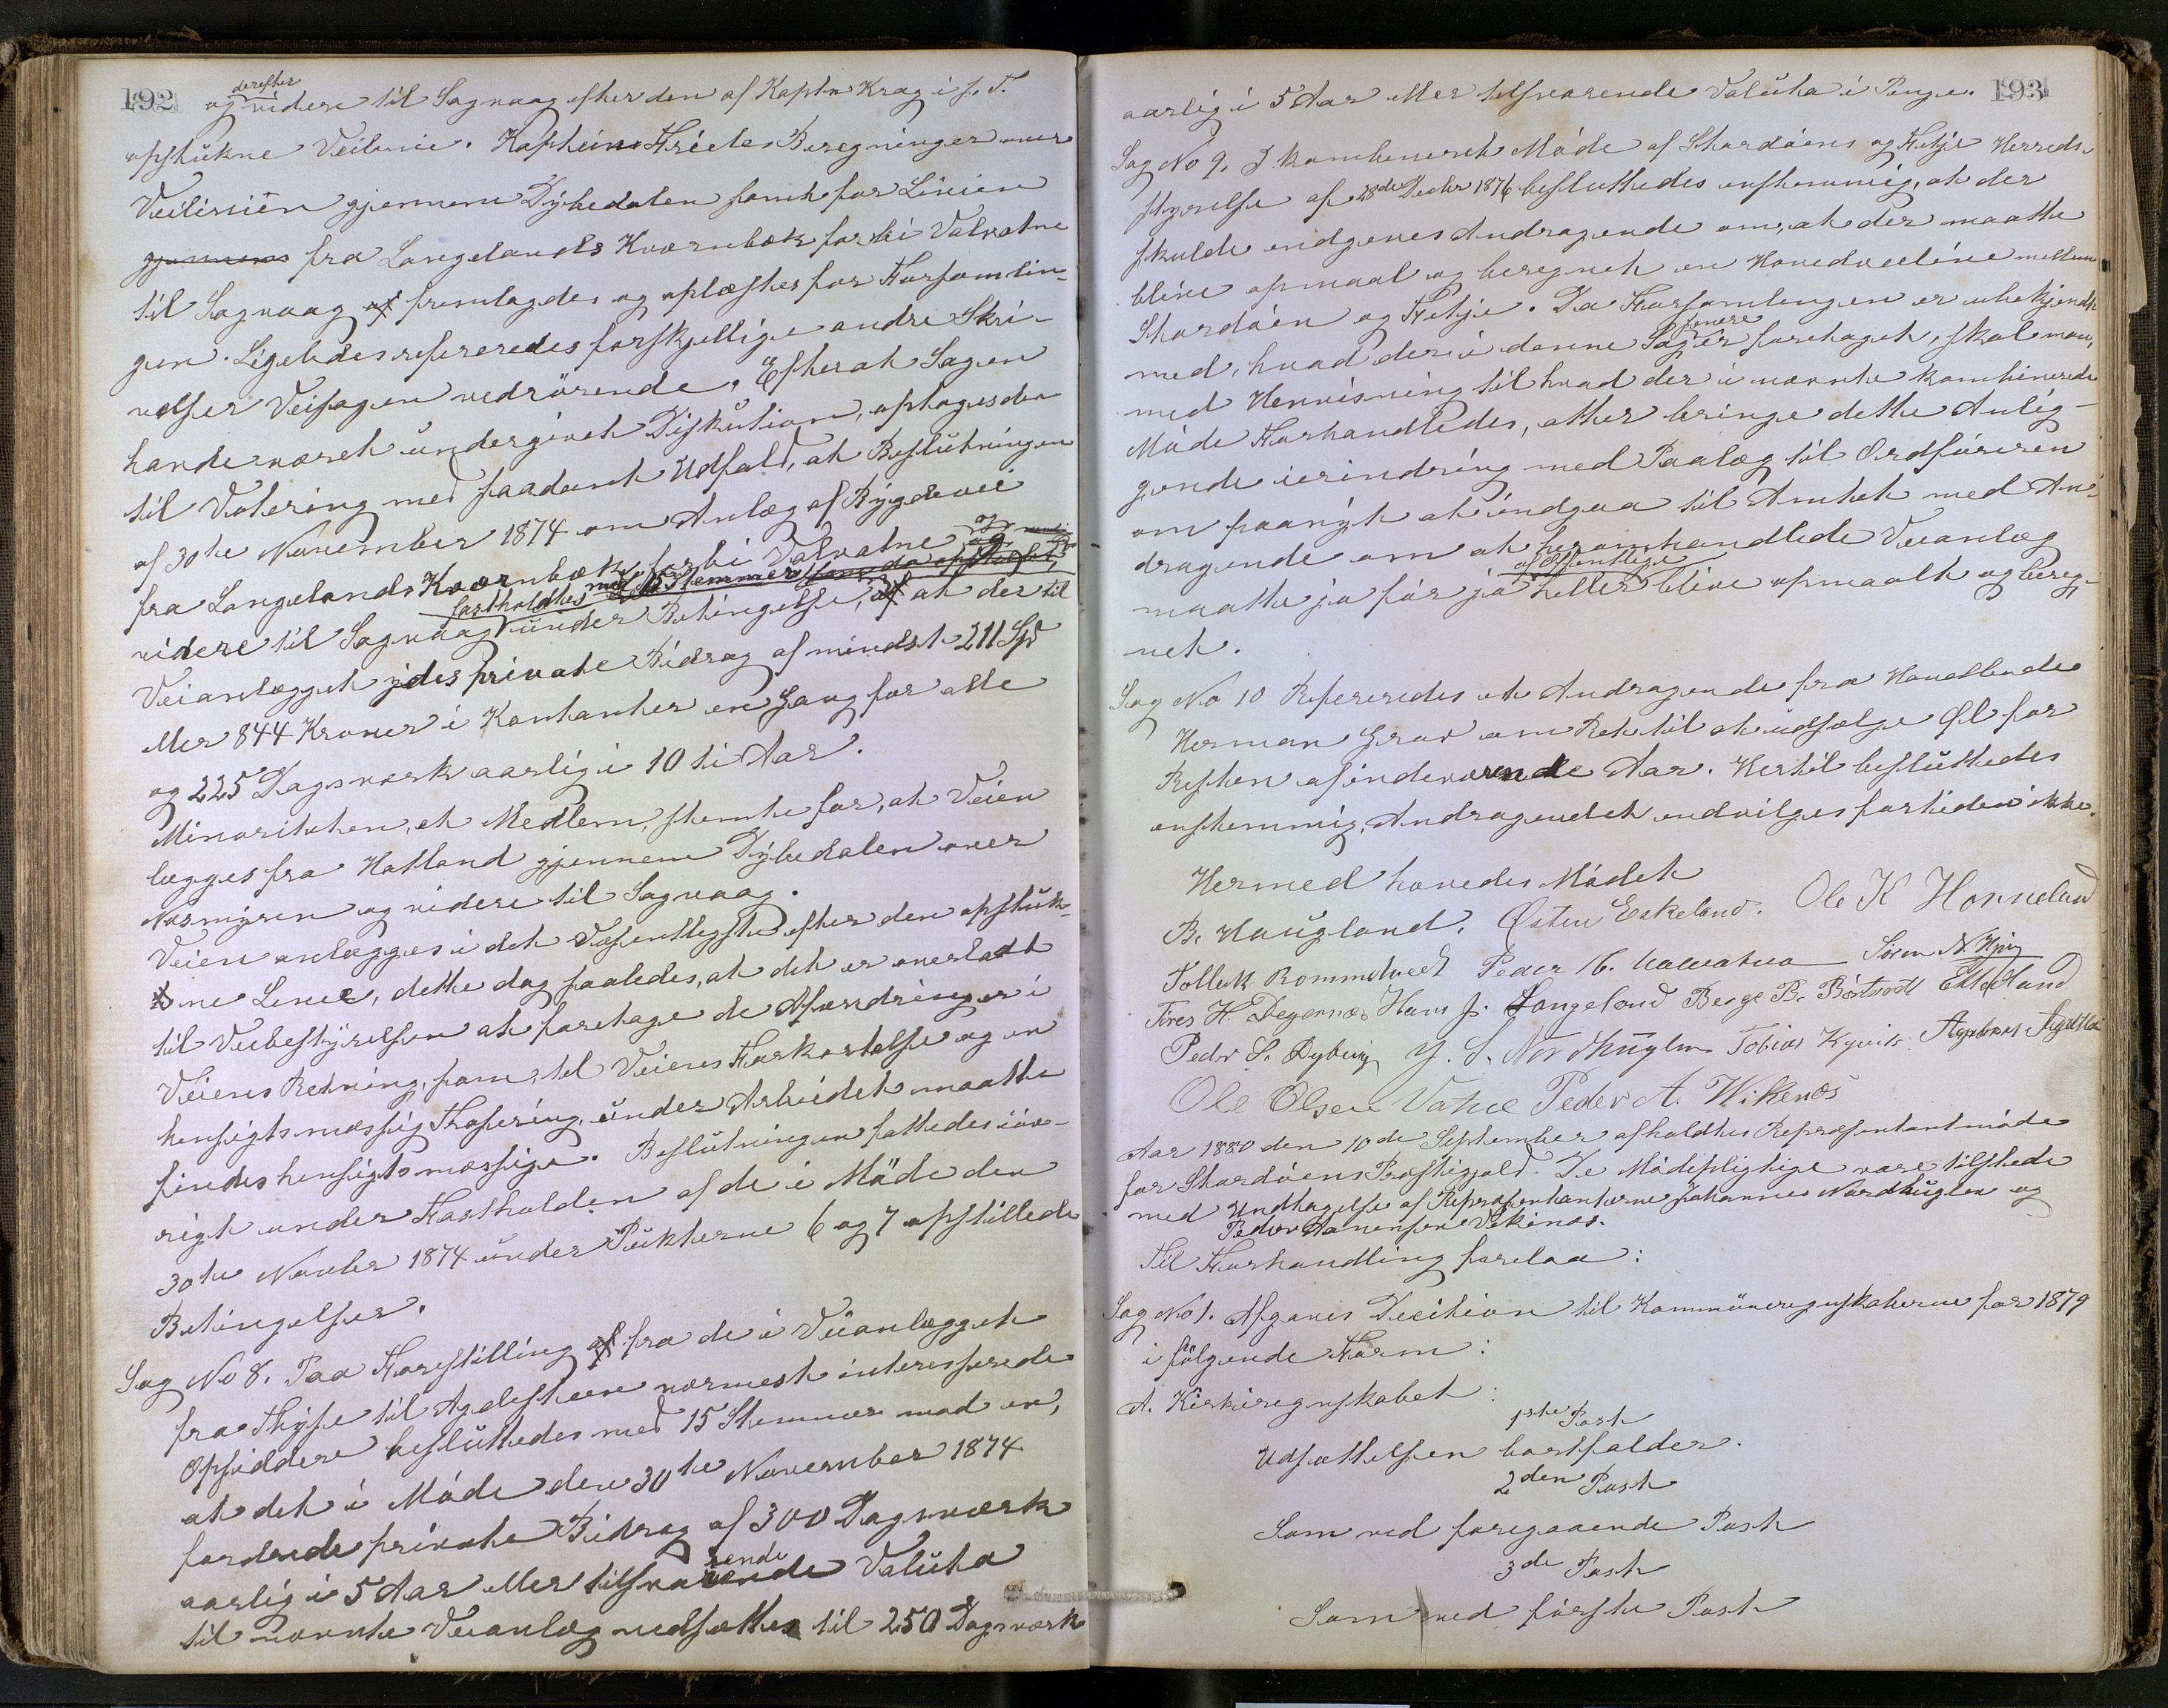 192
derefter
og videre til Sagvaag efter den af Kaptn Krag i s. T.
opstukne Veilinie. Kaptein Friеles Beregninger over
Veilinien gjennem Dybedalen samt for Linien
gjennem fra Langelands Kvernbæk forbi Valvatne
til Sagvaag af fremlagdes og oplæstes for Forsamlin-
gen. Ligeledes refereredes forskjellige andre Skri-
velser Veisagen vedrörende. Efter at Sagen
havde været undergivet Diskution, optoges den
til Votering med saadant Udfald, at Beslutningen
af 30te November 1874 om Anlæg af Bygdevei
fra Langelands Kvernbæk forbi Valvatne og
fastholdtes med 15 Stemmer
videre til Sagvaag under Betingelse, af at der til
Veianlægget ydes private Bidrag af mindst 211 Spd
eller 844 Kroner i Kontanter en Gang for alle
og 225 Dagsværk aarlig i 10 ti Aar.
Minoriteten, et Medlem, stemte for, at Veien
lægges fra Hatland gjennem Dybedalen over
Nosmyren og videre til Sagvaag.
Veien anlægges i det Væsentligste efter den opstuk-
ne Linie, dette dog saaledes, at det er overladt
til Veibestyrelsen at foretage de Aforandringer i
Veiens Retning, som til Veiens Forkortelse og en
hensigtsmæssig Trasering under Arbeidet maatte
findes hensigtsmæssige. Beslutningen fattedes iöv-
rigt under Fastholden af de i Möde den
30te Novbr 1874 under Pukterne 6 og 7 opstillede
Betingelser.
Sag No 8. Paa Forestilling af fra de i Veianlægget
fra Thyse til Agdesteen nærmest interesserede
Opsiddere besluttedes med 15 Stemmer mod en,
at det i Möde den 30te November 1874
fordrede private Bidrag af 300 Dagsværk
aarlig i 5 Aar eller tilsvarende Valuta
til nævnte Veianlæg nedsættes til 250 Dagsværk
193
aarlig i 5 Aar eller tilsvarende Valuta i Penge.
Sag No 9. I kombineret Möde af Stordöens og Fitje Herreds-
styrelse af 28de Decbr 1876 besluttedes enstemmig, at der
skulde indgives Andragende om, at der maatte
blive opmaalt og beregnet en Hovedveilinie mellem
Stordöen og Fitje. Da Forsamlingen er ubekjendt
senere
med, hvad der i denne Sag er foretaget, skal man,
med Henvisning til hvad der i nævnte kombinerede
Möde Forhandledes, atter bringe dette Anlig-
gende i erindring med Paalæg til Ordföreren
om paanyt at indgaa til Amtet med An-
dragende om at heromhandlede Veianlæg
af Offentlige
maatte jo för jo heller blive opmaalt og bereg-
net.
Sag No 10 Refereredes et Andragende fra Handlende
Herman Grov om Ret til at udsælge Øl for
Resten af indeværende Aar. Hertil besluttedes
enstemmig, Andragendet indvilges fortiden ikke.
Hermed hævedes Mödet
B. Haugland. Østen Eskeland. Ole K Horneland
Tollek Rommetvedt Peder
Sören N Höie
Töres H. Degernæs Hans J. Langeland Berge B. Börtvedt
Peder S. Dybing Tobias Kyvik
Ole Olsen Vatne Peder A. Wikenæs
Aar 1880 den 10de September afholdtes Repræsentantmöde
for Stordöens Præstegjeld. De Mödepligtige vare tilstede
med Undtagelse af Repræsentanterne Johannes Nordhuglen og
Peder Aanensen Vikenæs.
Til Forhandling forelaa:
Sag No 1. Afgaves Decition til Kommuneregnskaberne for 1879
i fölgende Form:
A. Kirkeregnskabet:
1ste Post
Udsættelsen bortfalder.
2den Post
Som ved foregaaende Post
3de Post
Som ved förste Post